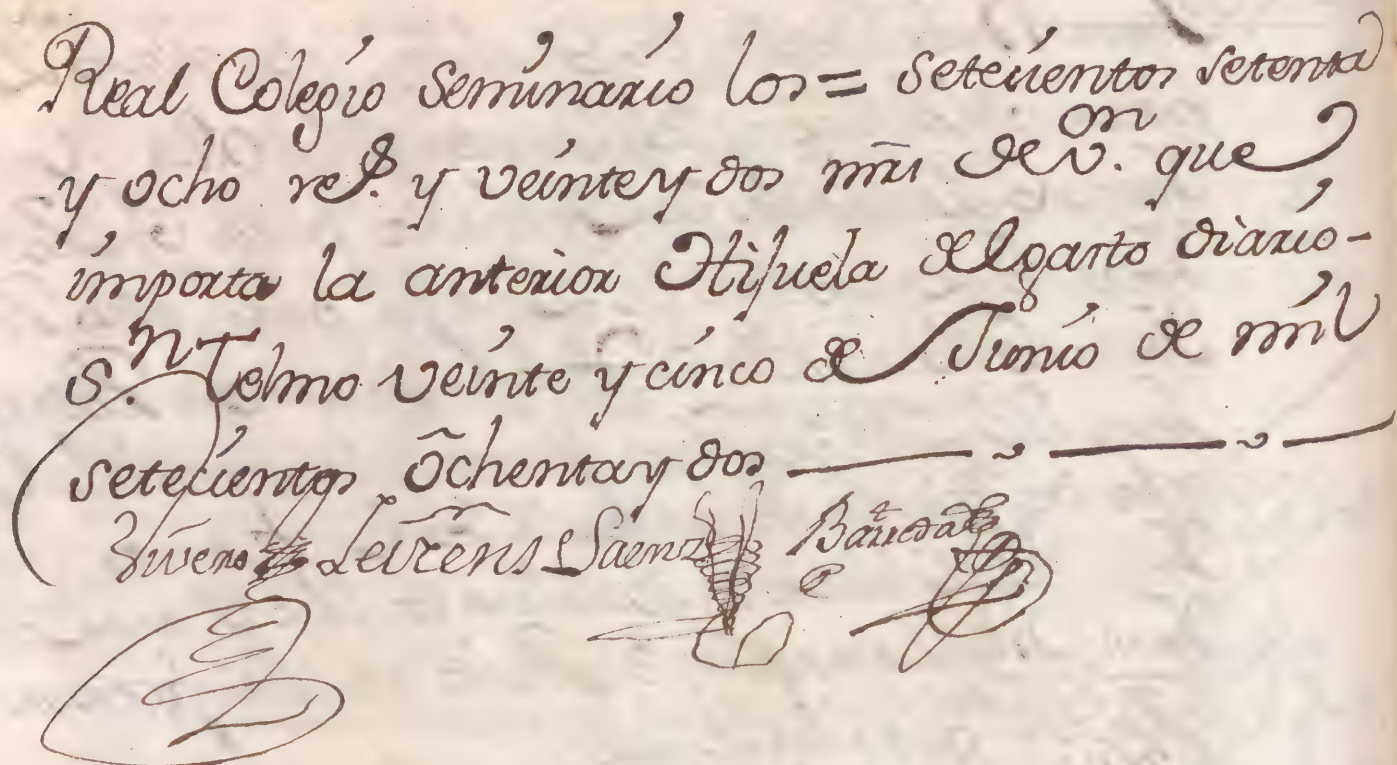 Real Colegio Seminario los = setecientos setenta
y ocho rs. y veinte y dos mrs de vn. que
importa la anterior Hijuela del gasto diario-
Sn. Telmo veinte y cinco de Junio de mil
setecientos õchenta y dos
Vivero Leirens Saenz Barreda